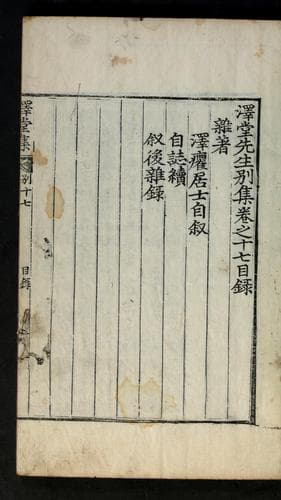 澤堂先生别集卷之十七目錄
雜著
澤癯居士自叙
自誌續
叙後雜錄
澤堂集
别十七
目錄